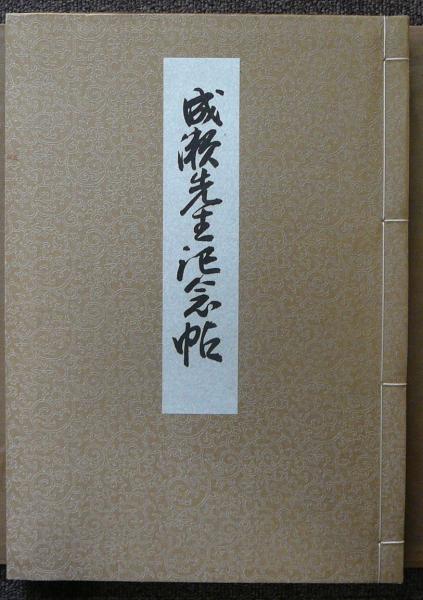 成瀬先生記念帖